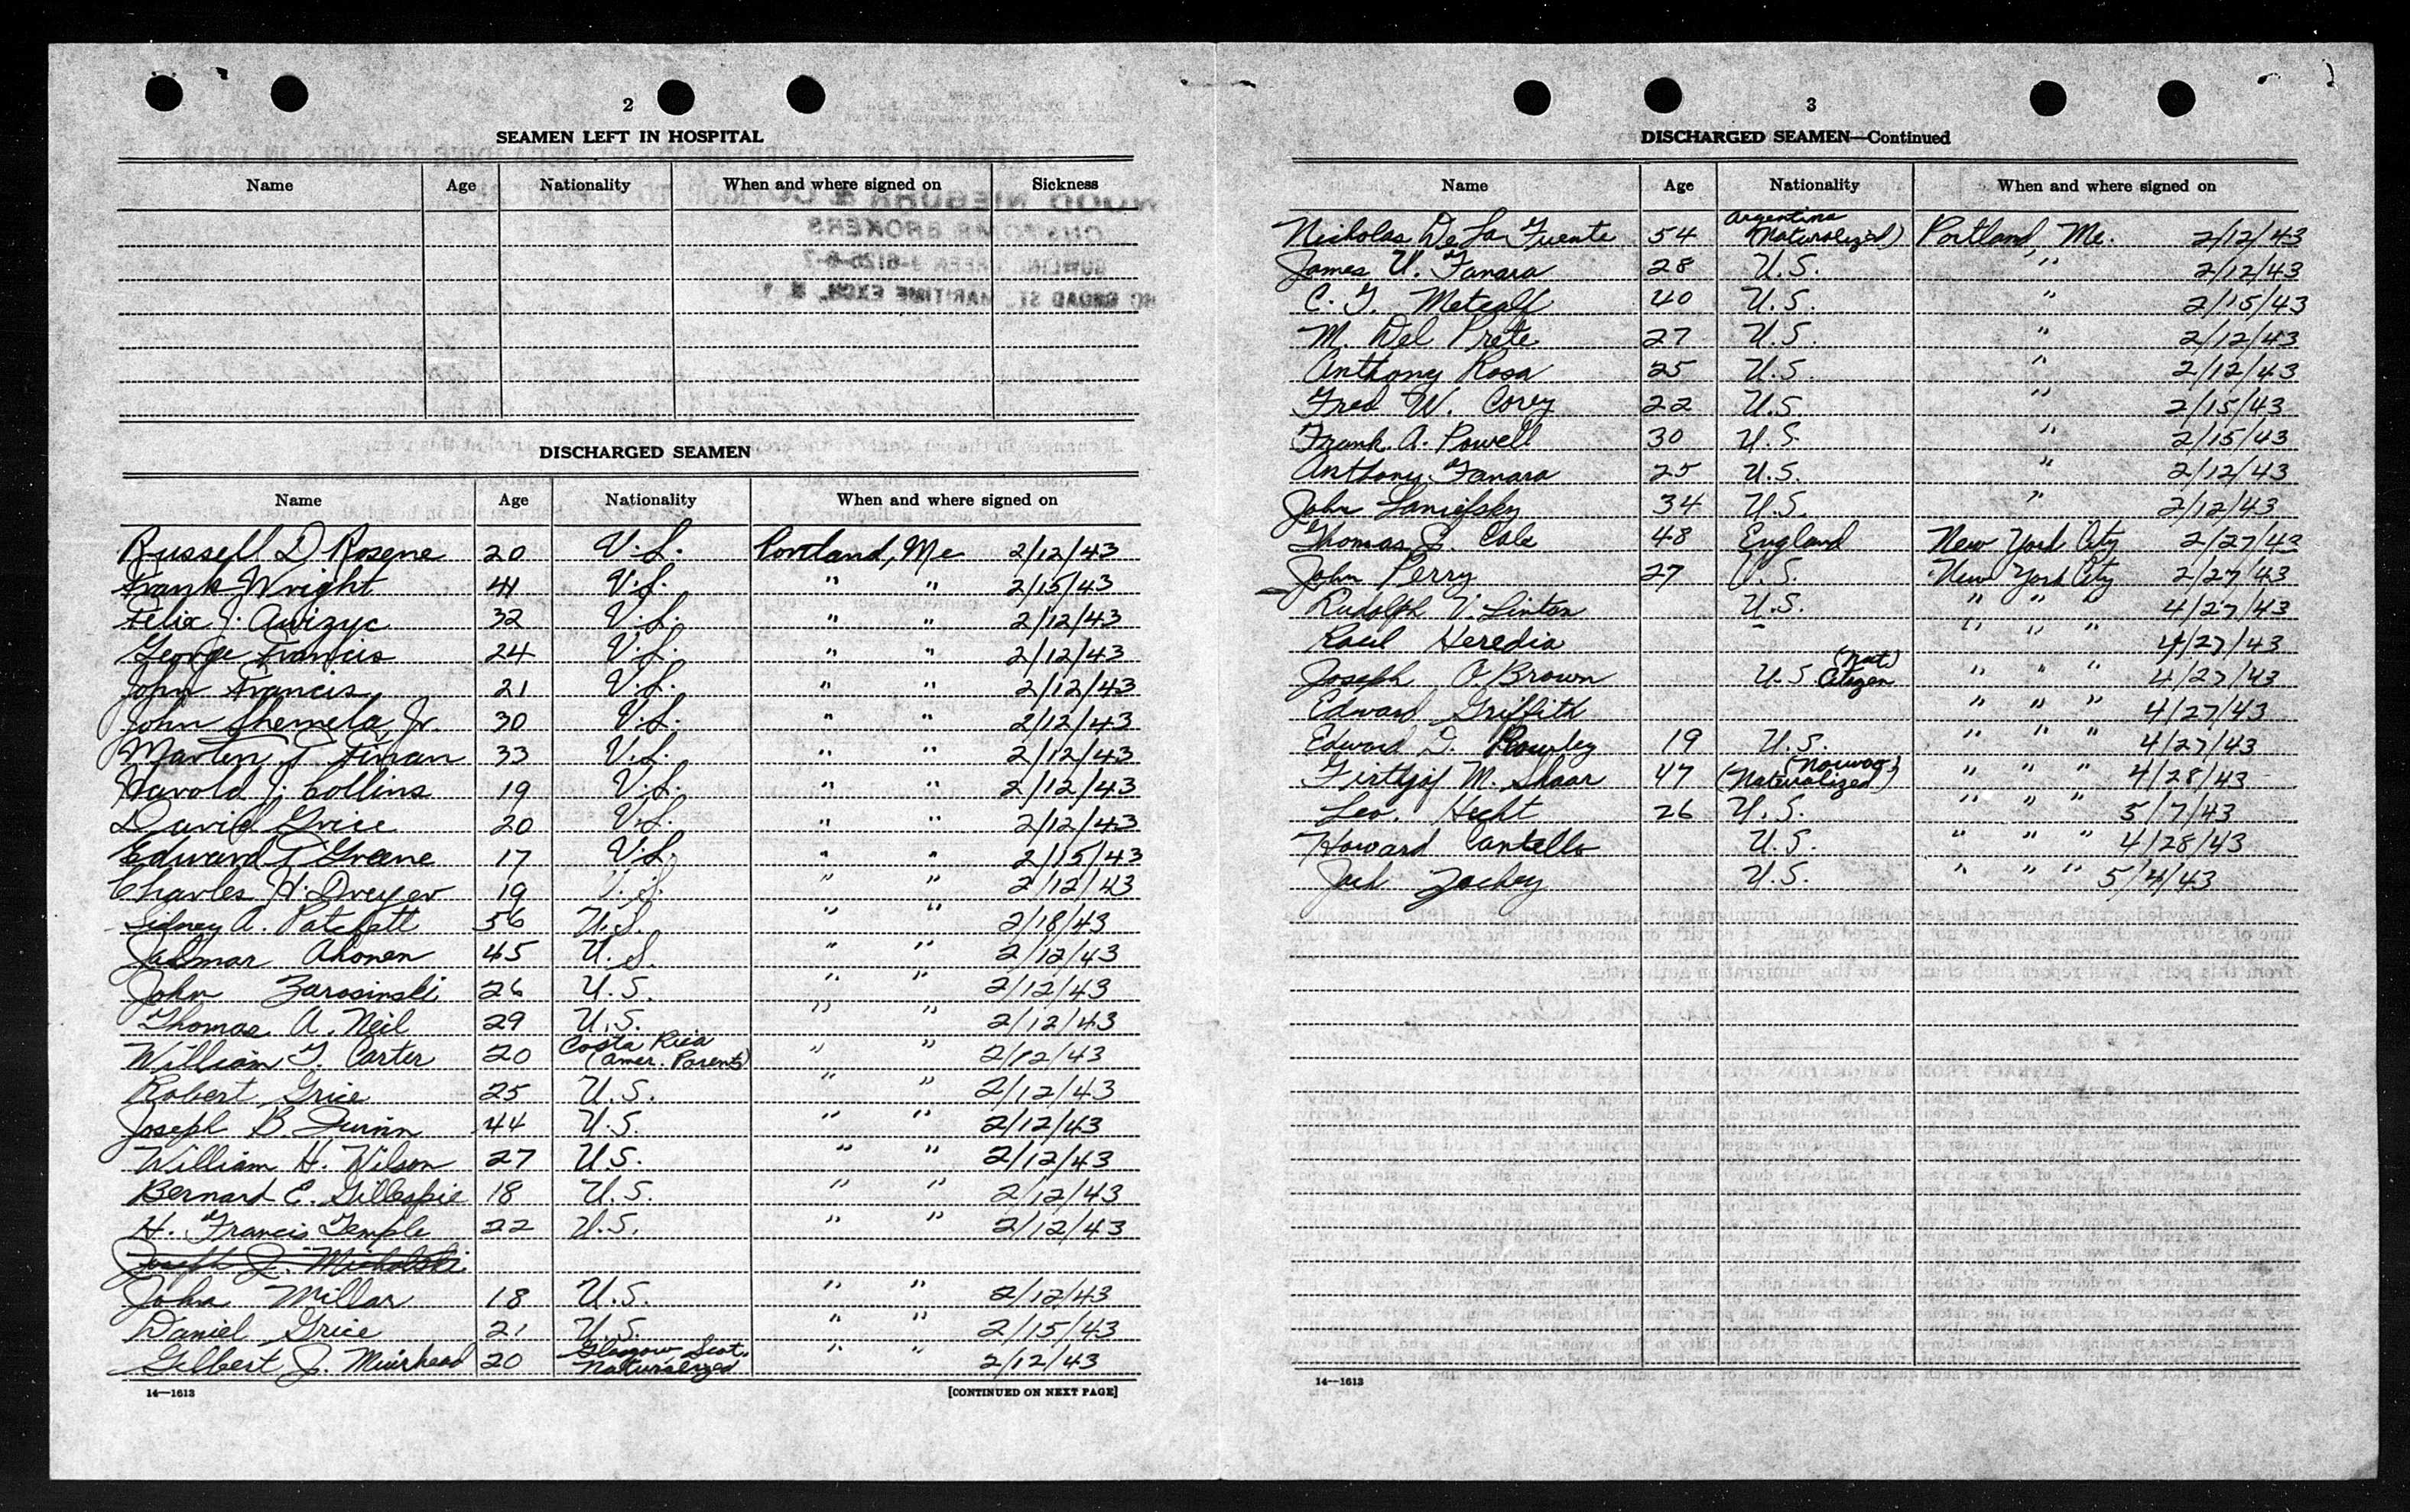 2
SEAMEN LEFT IN HOSPITAL
Name Age Nationality When and where signed on Sickness
DISCHARGED SEAMEN
Name Age Nationality When and where signed on
Russell D Rosene 20 U.S. Portland, Me 2/12/43
Frank Wright 41 U.S. " " 2/15/43
Felix J. Awizyc 32 U.S. " " 2/12/43
George Francis 24 U.S. " " 2/12/43
John Francis 21 U.S. " " 2/12/43
John Shemela, Jr. 30 U.S. " " 2/12/43
Martin T. Finan 33 U.S. " " 2/12/43
Harold J. Collins 19 U.S. " " 2/12/43
David Grice 20 U.S. " " 2/12/43
Edward T Greene 17 U.S. " " 2/15/43
Charles H. Dreyer 19 U.S. " " 2/12/43
Sidney A. Patchett 56 U.S. " " 2/18/43
Jalmar Ahonen 45 U.S. " " 2/12/43
John Zarosinski 26 U.S. " " 2/12/43
Thomas A. Neil 29 U.S. " " 2/12/43
William T. Carter 20 Costa Rica (Amer. Parents) " " 2/12/43
Robert Grice 25 U.S. " " 2/12/43
Joseph B. Quinn 44 U.S. " " 2/12/43
William H. Wilson 27 U.S. " " 2/12/43
Bernard E. Gillespie 18 U.S. " " 2/12/43
H. Francis Temple 22 U.S. " " 2/12/43
Joseph J. Micholski
John Millar 18 U.S. " " 2/12/43
Daniel Grice 21 U.S. " " 2/15/43
Gilbert J. Muirhead 20 Glasgow Scot. Naturalized " " 2/12/43
14—1613 [CONTINUED ON NEXT PAGE]
3
DISCHARGED SEAMEN—Continued
Name Age Nationality When and where signed on
Nicholas De La Fuente 54 Argentina (Naturalized) Portland, Me. 2/12/43
James V. Fanara 28 U.S. " 2/12/43
C. T. Metcalf 40 U.S. " 2/15/43
M. Del Prete 27 U.S. " 2/12/43
Anthony Rosa 25 U.S. " 2/12/43
Fred W. Corey 22 U.S. " 2/15/43
Frank A. Powell 30 U.S. " 2/15/43
Anthony Fanara 25 U.S. " 2/12/43
John 34 U.S. " 2/12/43
Thomas Cole 48 England New York City 2/27/43
John Perry 27 U.S. New York City 2/27/43
Rudolph V. Linton U.S. " " " 4/27/43
Raul Heredia - " " " 4/27/43
Joseph O. Brown U.S. (Nat) Citizen " " " 4/27/43
Edward Griffith " " " 4/27/43
Edward D. Rowley 19 U.S. " " " 4/27/43
Firthjof M. Skaar 47 (Norway) (Naturalized) " " " 4/28/43
Leo. Hecht 26 U.S. " " " 5/7/43
Howard Cantello U.S. " " " 4/28/43
Jack Zackey U.S. " " " 5/4/43
14—1613